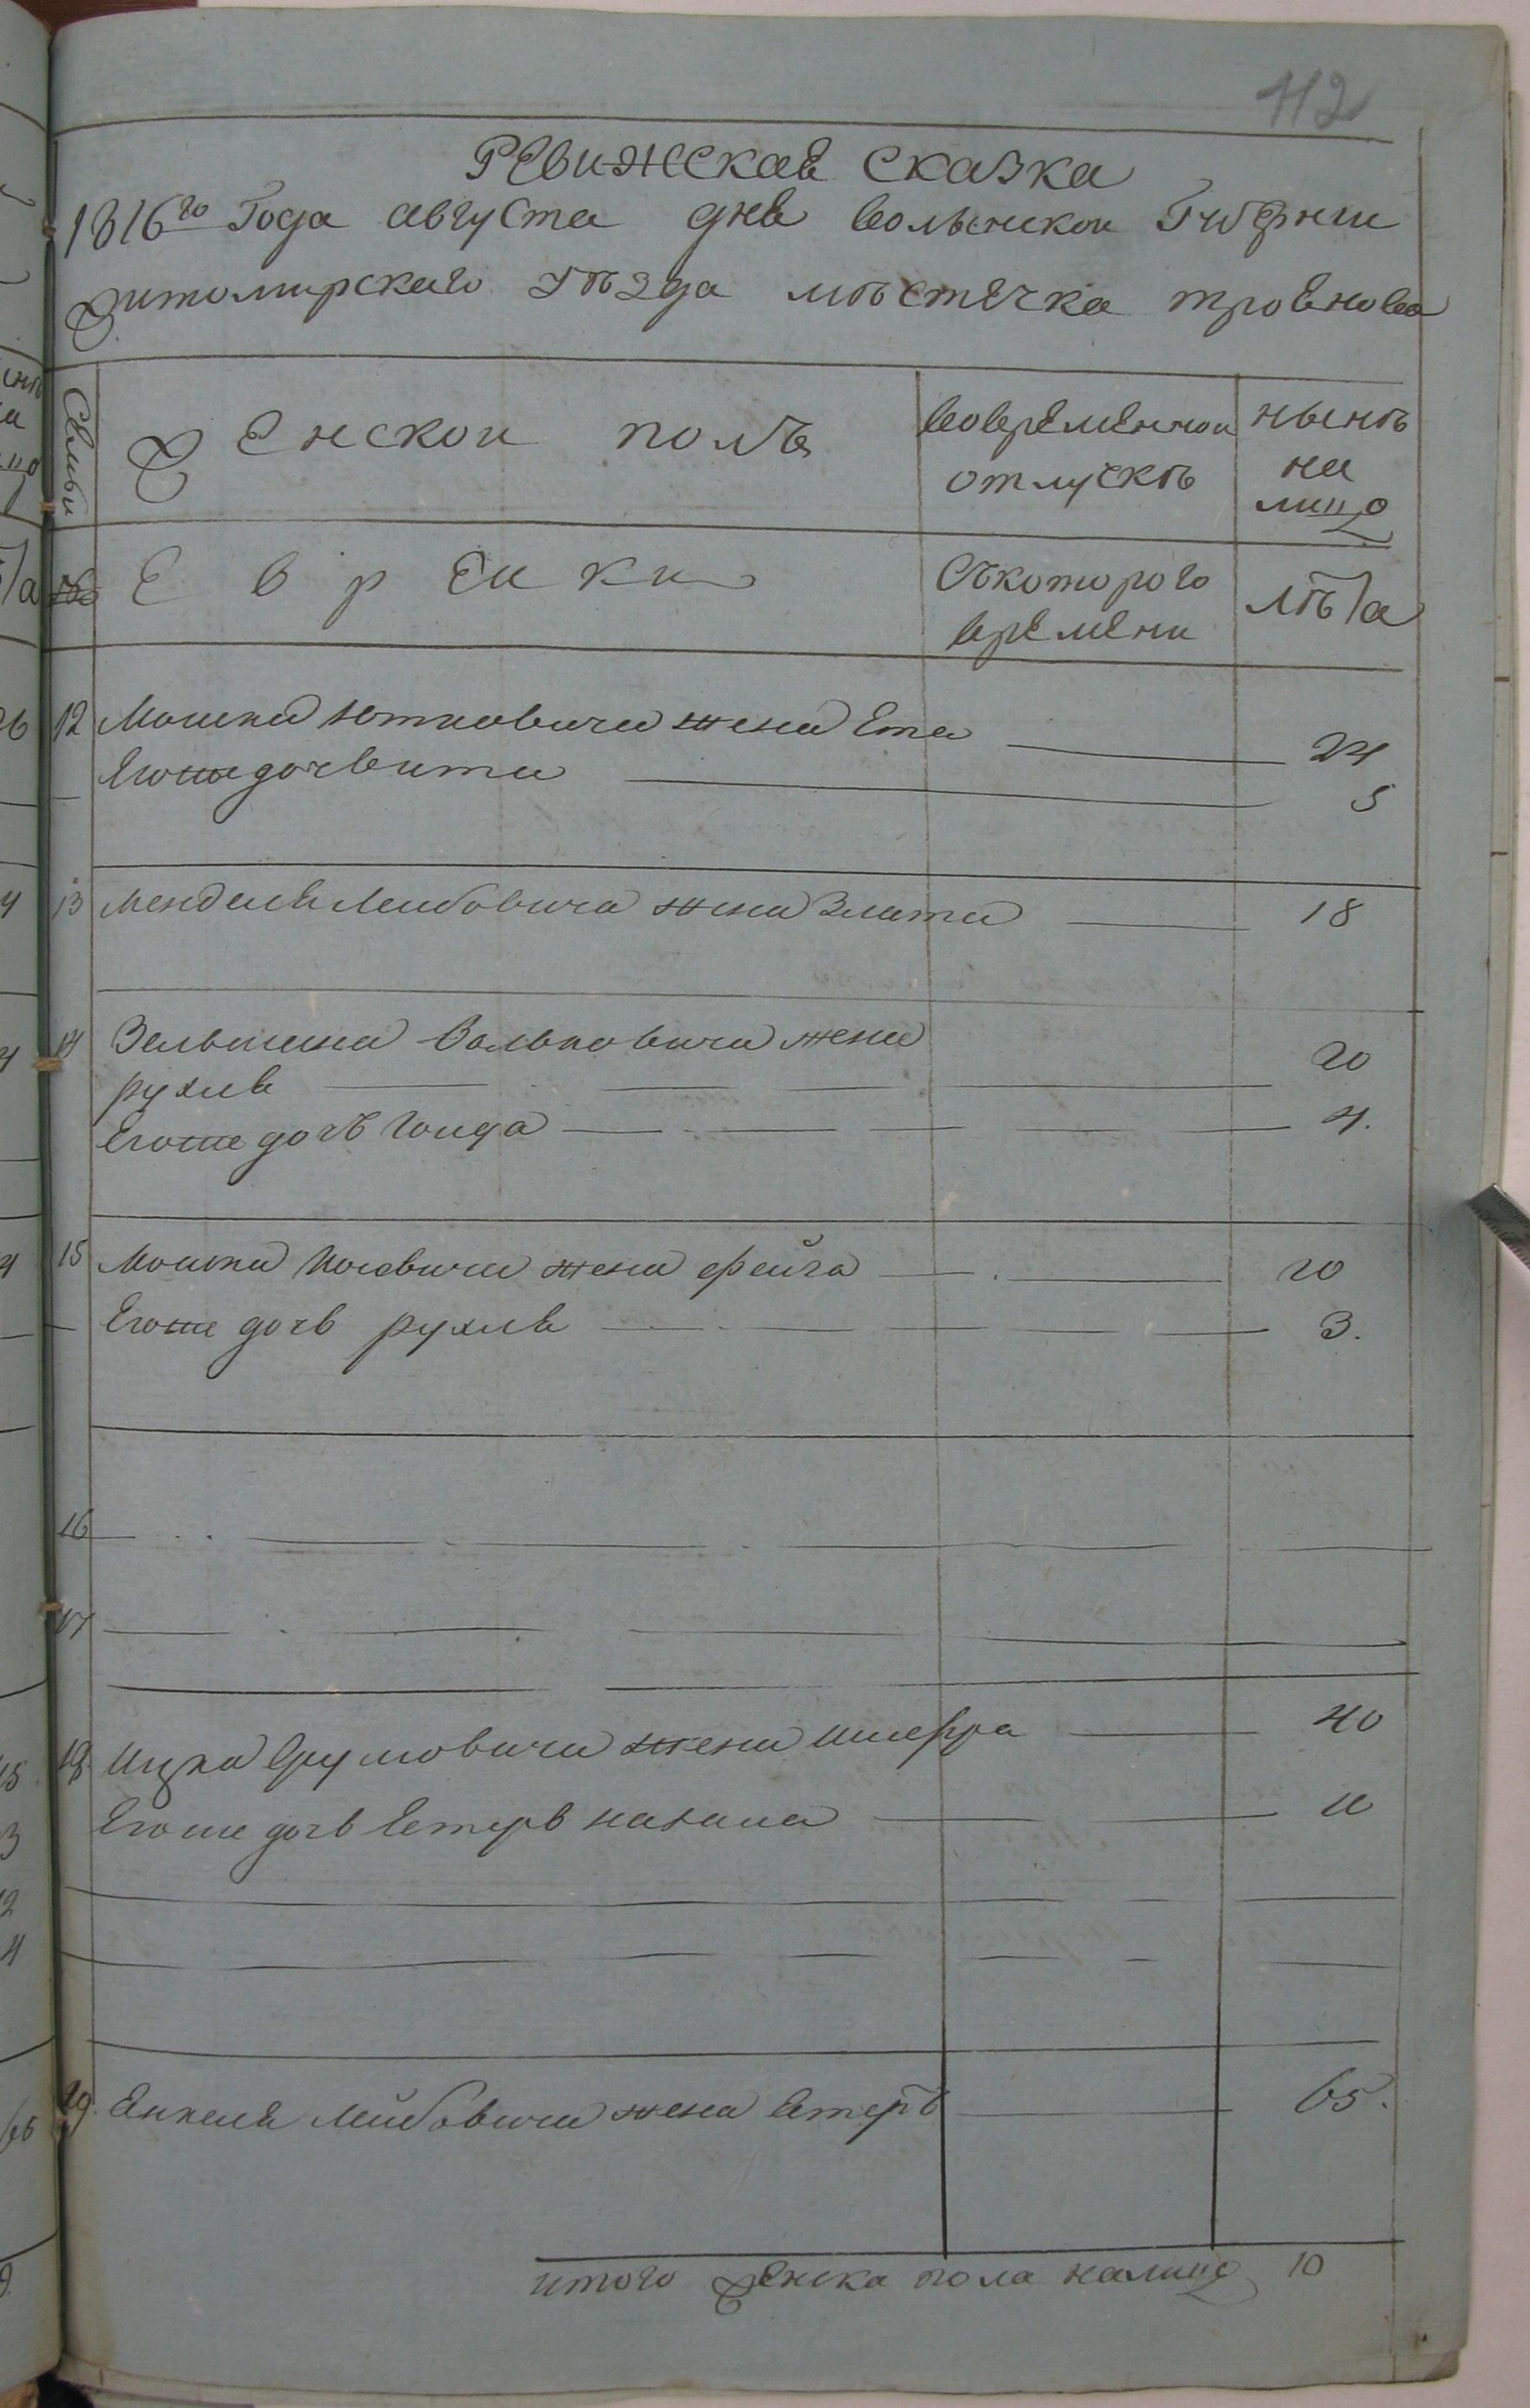 112
Ревижская сказка
1816го Года августа дня волынскои Губернии
житомирского уѣзда мѣстечка троянова
Семьи
Женскои полъ
вовременнои
отлучкѣ
нынѣ
на
лицо
№
Евреики
Съкоторого
времени
лѣта
12 Мошка жена Ета 24
Егоже дочь ита 5
13 Менделя Лейбовича жена Злата 18
14 Зельмана Вольковича жена
рухля 20
Егоже дочь Гоида 4.
15 Мошка жена фейга 20
Егоже дочь рухля 3.
16
17
18 Ицка Срулювича жена 40
Егоже дочь Естерь 10
19. Янкеля Лейбовича жена Естеръ 65.
итого женска пола налицо 10